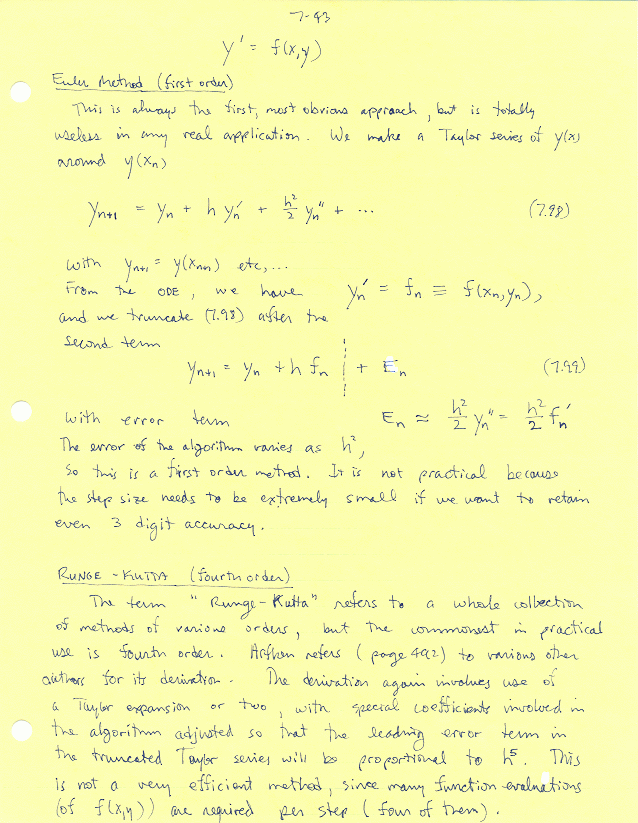 7-93
y' = f(x,y)
Euler Method (first order)
This is always the first, most obvious approach, but is totally
useless in any real application. We make a Taylor series of y(x)
around y(xₙ)
yₙ₊₁ = yₙ + h yₙ' + h²/2 yₙ'' + ... (7.98)
with yₙ₊₁ = y(xₙ₊₁) etc,...
From the ODE, we have yₙ' = fₙ ≡ f(xₙ,yₙ),
and we truncate (7.98) after the
second term
yₙ₊₁ = yₙ + h fₙ | + Eₙ (7.99)
with error term Eₙ ≈ h²/2 yₙ'' = h²/2 fₙ'
The error of the algorithm varies as h²,
so this is a first order method. It is not practical because
the step size needs to be extremely small if we want to retain
even 3 digit accuracy.
RUNGE-KUTTA (fourth order)
The term "Runge-Kutta" refers to a whole collection
of methods of various orders, but the commonest in practical
use is fourth order. Arfken refers (page 492) to various other
authors for its derivation. The derivation again involves use of
a Taylor expansion or two, with special coefficients involved in
the algorithm adjusted so that the leading error term in
the truncated Taylor series will be proportional to h⁵. This
is not a very efficient method, since many function evaluations
(of f(x,y)) are required per step (four of them).